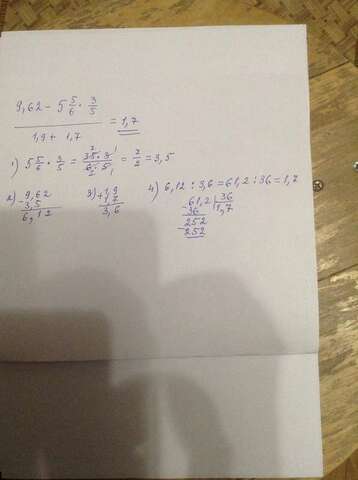 9,62 - 5 5/6 · 3/5
———————— = 1,7
1,9 + 1,7
1) 5 5/6 · 3/5 = 35 · 3 / 6 · 5 = 7/2 = 3,5
2) - 9,62
3,5
6,12
3) + 1,9
1,7
3,6
4) 6,12 : 3,6 = 61,2 : 36 = 1,7
- 61,2 | 36
36 | 1,7
- 252
252